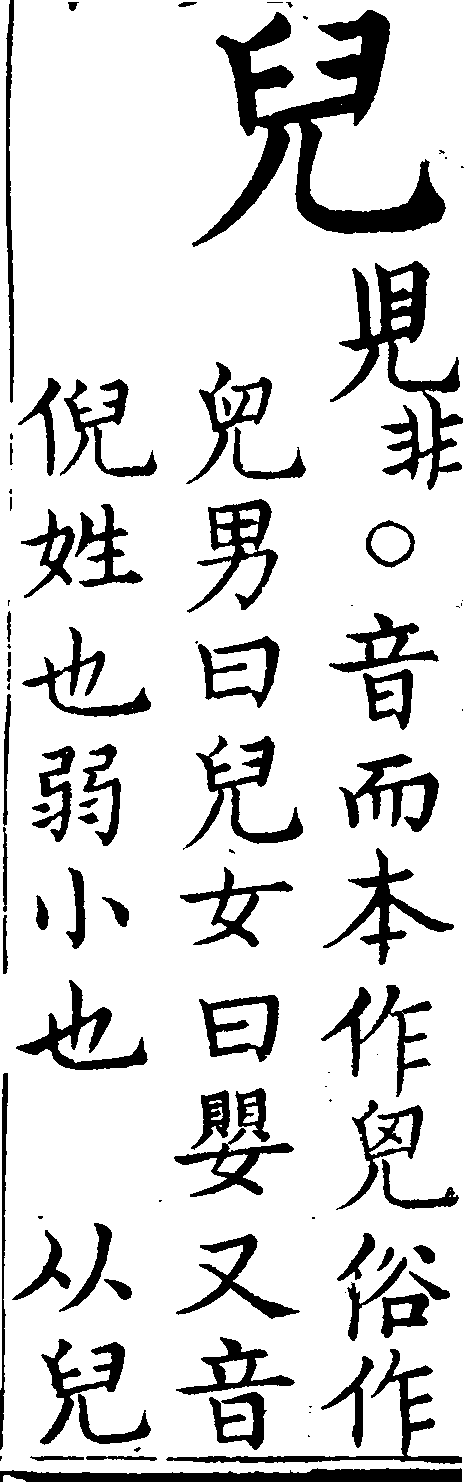 兒
児非○音而本作兒俗作
兒男曰兒女曰嬰又音
倪姓也弱小也 从兒